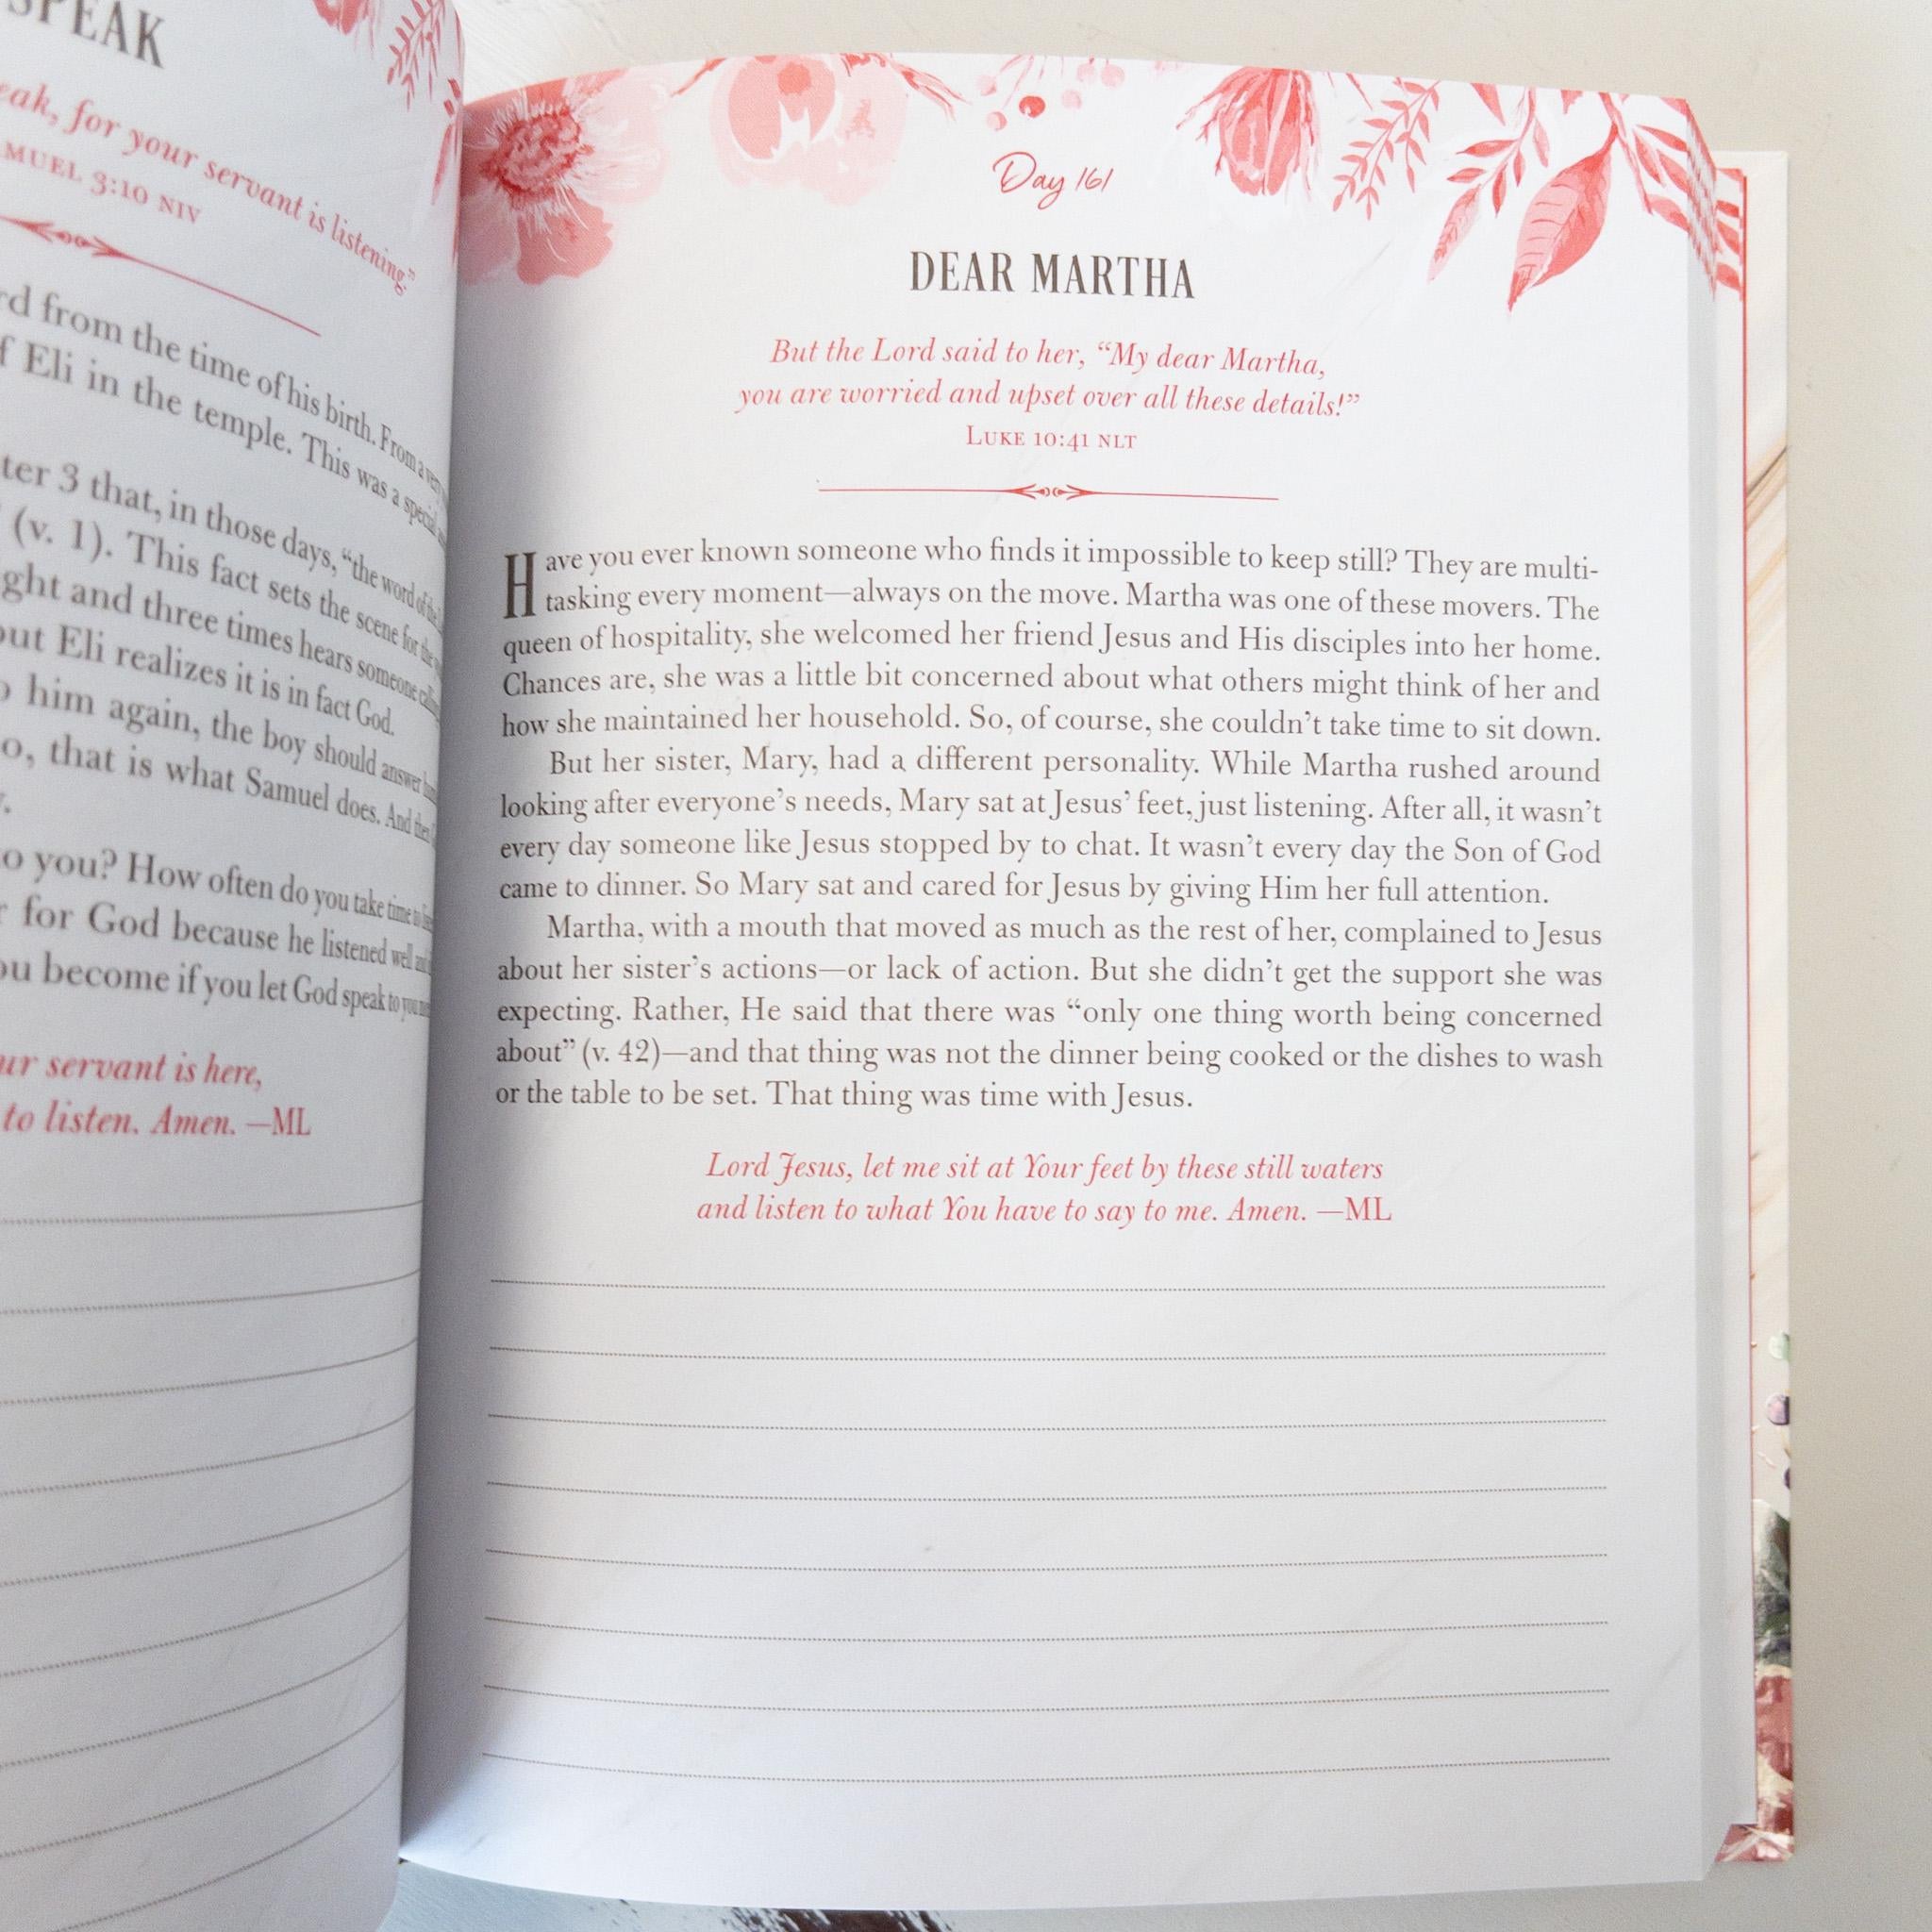 SPEAK
eak, for your servant is listening."
MUEL 3:10 NIV
rd from the time of his birth. From a very
f Eli in the temple. This was a special
ter 3 that, in those days, “the word of the
(v. 1). This fact sets the scene for the
ght and three times hears someone calling
out Eli realizes it is in fact God.
o him again, the boy should answer
o, that is what Samuel does. And then
y.
to you? How often do you take time to
r for God because he listened well and
ou become if you let God speak to you
ur servant is here,
to listen. Amen. —ML
Day 161
DEAR MARTHA
But the Lord said to her, “My dear Martha,
you are worried and upset over all these details!”
LUKE 10:41 NLT
Have you ever known someone who finds it impossible to keep still? They are multi-
tasking every moment—always on the move. Martha was one of these movers. The
queen of hospitality, she welcomed her friend Jesus and His disciples into her home.
Chances are, she was a little bit concerned about what others might think of her and
how she maintained her household. So, of course, she couldn’t take time to sit down.
But her sister, Mary, had a different personality. While Martha rushed around
looking after everyone’s needs, Mary sat at Jesus’ feet, just listening. After all, it wasn’t
every day someone like Jesus stopped by to chat. It wasn’t every day the Son of God
came to dinner. So Mary sat and cared for Jesus by giving Him her full attention.
Martha, with a mouth that moved as much as the rest of her, complained to Jesus
about her sister’s actions—or lack of action. But she didn’t get the support she was
expecting. Rather, He said that there was “only one thing worth being concerned
about” (v. 42)—and that thing was not the dinner being cooked or the dishes to wash
or the table to be set. That thing was time with Jesus.
Lord Jesus, let me sit at Your feet by these still waters
and listen to what You have to say to me. Amen. —ML